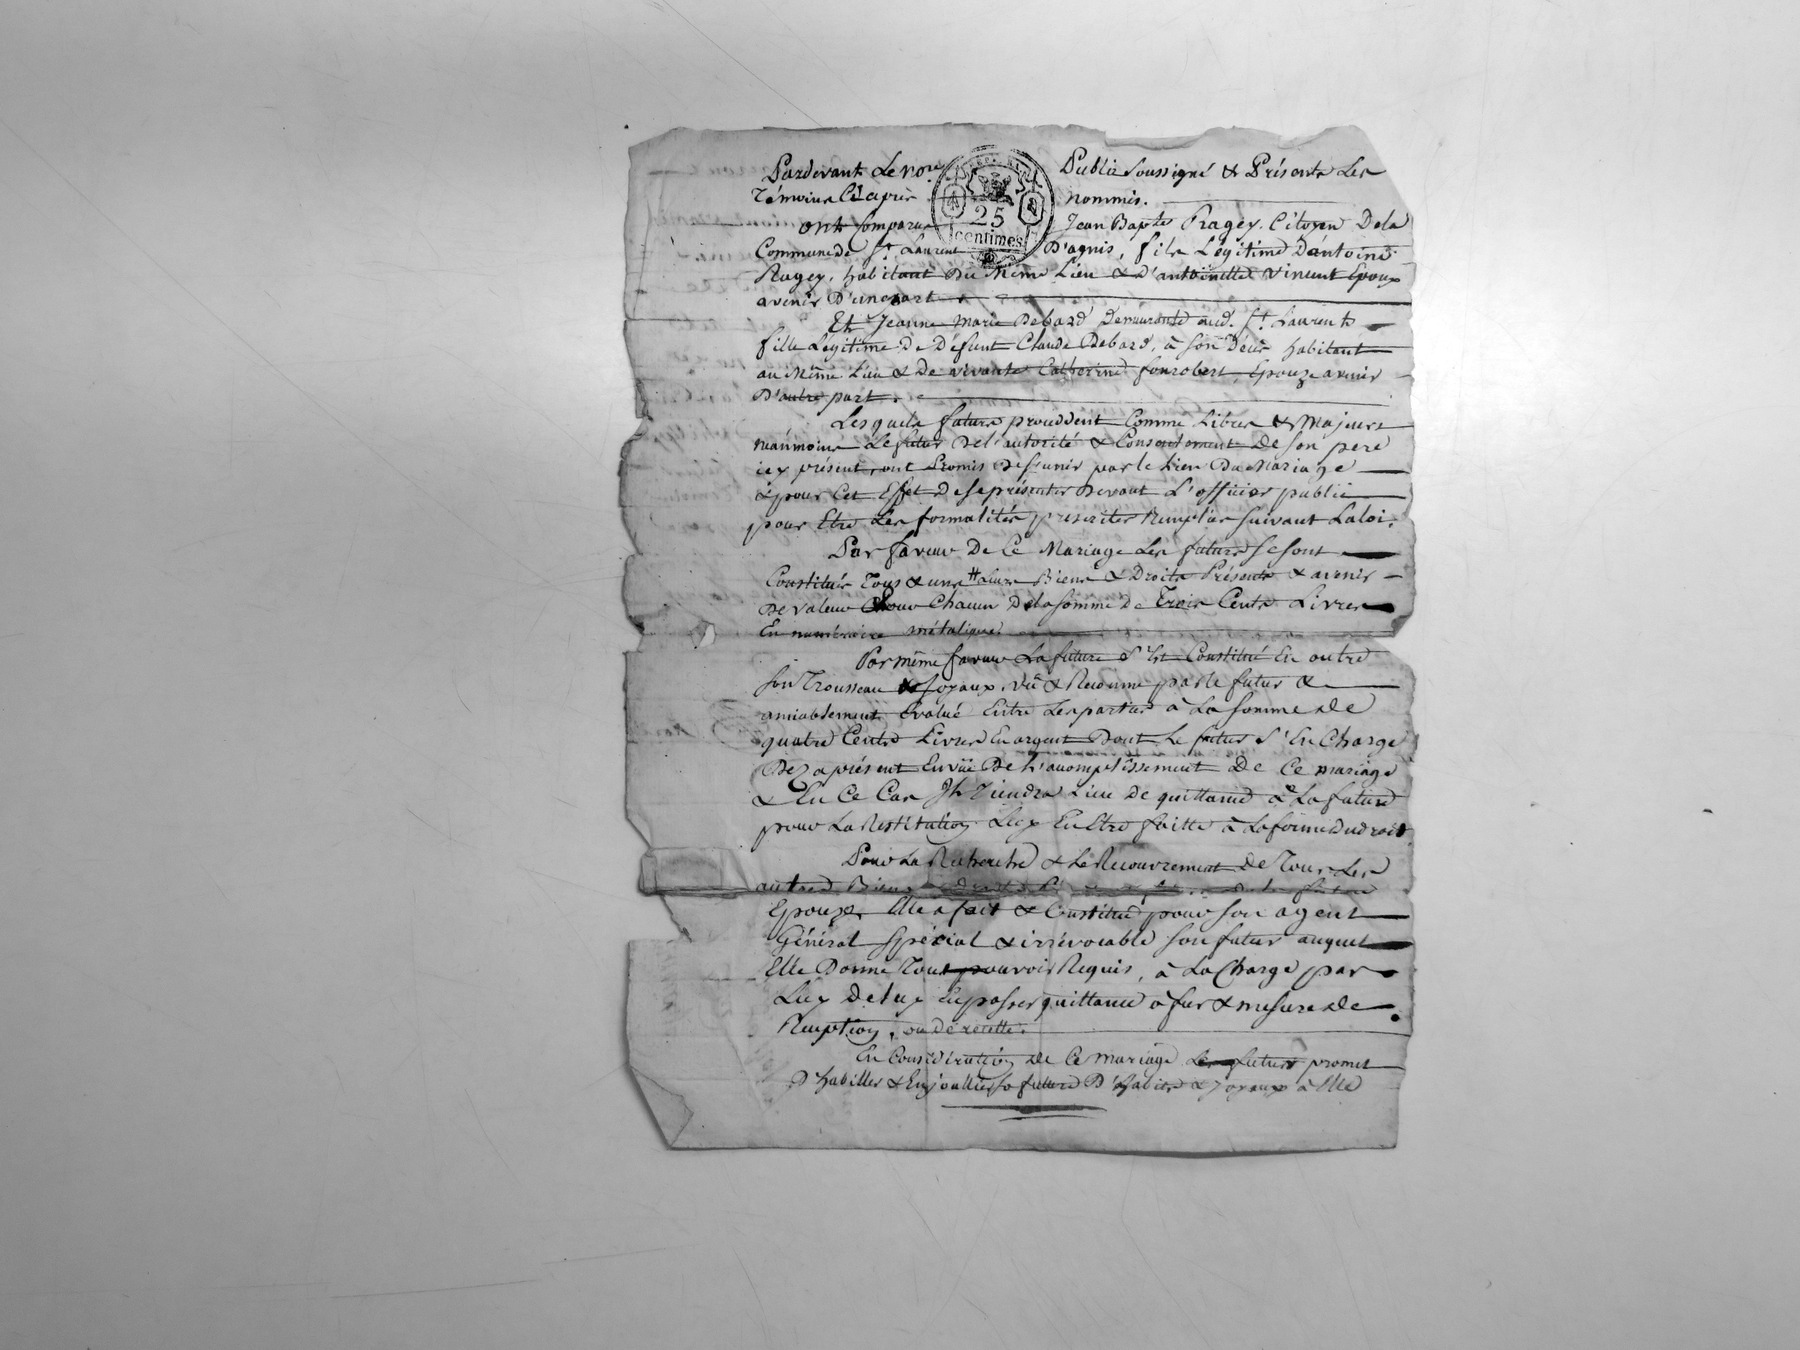 Pardevant Le no.re Public Soussigné & Présents Les
Témoins Cÿ après nommés.
REP. FRA
25
centimes
ont Comparus Jean Bapte Ragey, Citoyen Dela
Commune de St. Laurent D'agnis, fils Légitime D'antoine
Ragey, habitant Du Même Lieu & D'antoinette Vincent Epoux
avenir D'une part
Et Jeanne Marie Debard Demeurante aud. St. Laurent
fille Légitime De Défunt Claude Debard, à son Décès habitant
au Même Lieu & De vivante Catherine fonrobert, Epouze avenir
D'autre part.
Lesquels futurs procèdent Comme Libres & Majeurs
néanmoins Le futur De l'autorité & Consentement De Son pere
icy présent, ont Promis De s'unir par le Lien Du Mariage
& pour Cet Effet De se présenter Devant L'officier public
pour Etre Les formalités prescrites Remplies Suivant La loi.
Par faveur De Ce Mariage Les futurs se sont
Constitués Tous & uns Leurs Biens & Droits Présents & avenir
De valeur pour Chacun De la Somme De Trois Cents Livres
En numéraire métalique.
Par même faveur La future s'Est Constitué En outre
Son Trousseau & Joyaux, Vû & Reconnu par le futur &
amiablement évalué Entre Les parties à La Somme De
quatre Cents Livres En argent Dont Le futur s'En Charge
Dez aprésent En vüe De L'acomplissement De Ce mariage
& En Ce Cas Il Tiendra Lieu De quittance à La future
pour La Restitution Luy En Etre faitte à La forme Du droit.
Pour La Recherche & Le Recouvrement De Tous Les
autres Biens Droits
Epouze, Elle a fait & Constitué pour Son agent
Général Spécial & irrévocable Son futur auquel
Elle Donne Tout pouvoir Requis, à La Charge par
Luy De Luy En passer quittance à fur & mesure De
Réception, ou De recette.
En Considération De Ce mariage Le futur promet
D'habiller & Enjoailler sa future D'habits & Joyaux à Elle